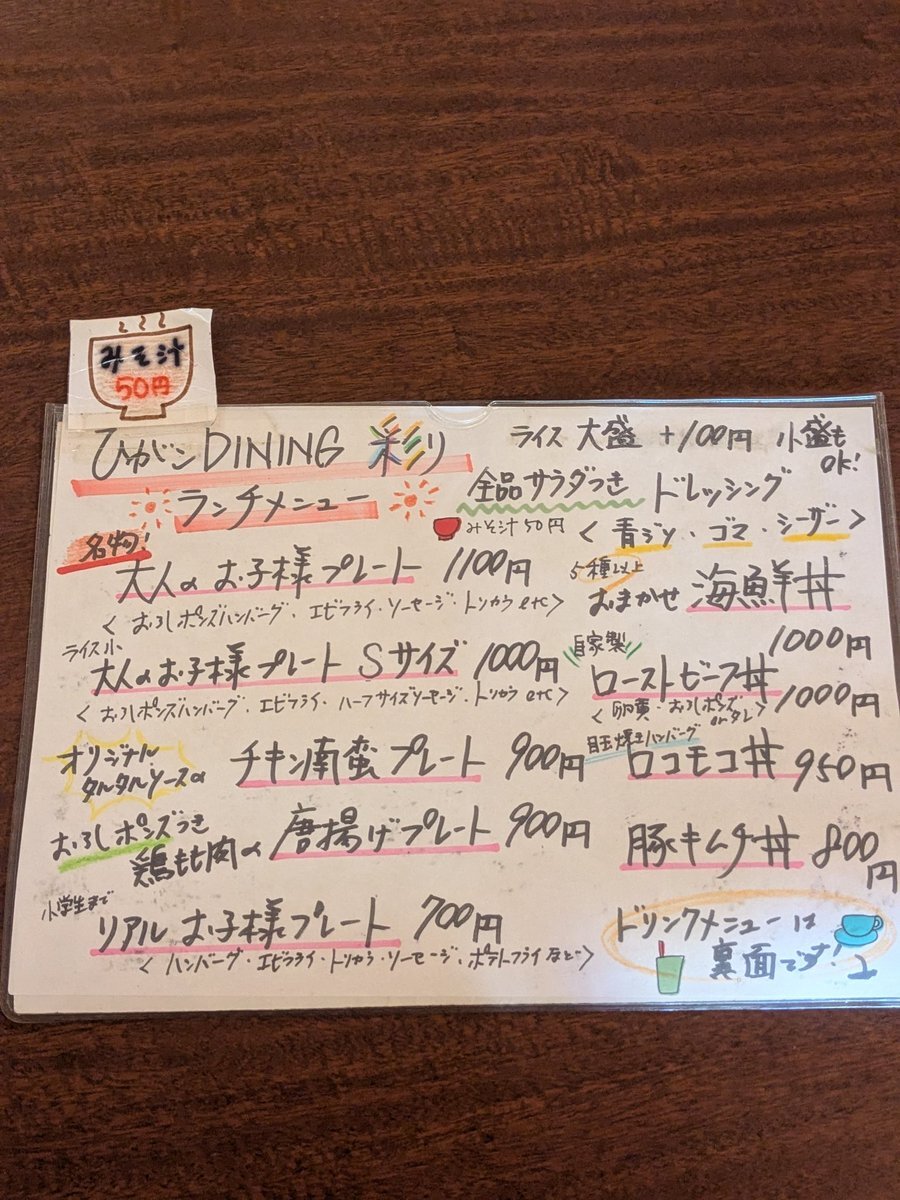 みそ汁
50円
ひがしDINING 彩り
ランチメニュー
ライス 大盛 +100円 小盛も
OK!
全品サラダつき ドレッシング
みそ汁50円
<青ジソ・ゴマ・シーザー>
名物!
大人のお子様プレート 1100円
<おろしポンズハンバーグ・エビフライ・ソーセージ・トリカラ etc>
ライス小
大人のお子様プレート Sサイズ 1000円
<おろしポンズハンバーグ・エビフライ・ハーフサイズソーセージ・トリカラ etc>
オリジナル
タルタルソースの
チキン南蛮プレート 900円
おろしポンズつき
鶏もも肉の 唐揚げプレート 900円
小学生まで
リアルお子様プレート 700円
<ハンバーグ・エビフライ・トリカラ・ソーセージ・ポテトフライなど>
5種以上
おまかせ 海鮮丼
1000円
自家製
ローストビーフ丼
<卵黄・おろしポンズ
orタレ>
1000円
目玉焼き ハンバーグ
ロコモコ丼 950円
豚キムチ丼 800
円
ドリンクメニューは
裏面です!